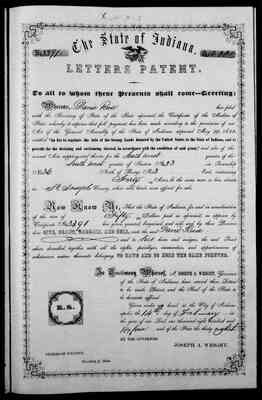 The State of Indiana.
No. 3391
LETTERS PATENT.
To all to whom these Presents shall come—Greeting:
Whereas, has filed
with the Secretary of State of the State aforesaid, the Certificate of the Auditor of
State, whereby it appears that full payment has been made according to the provisions of an
Act of the General Assembly of the State of Indiana, approved May 29, 1852,
entitled "An Act to regulate the sale of the Swamp Lands donated by the United States to the State of Indiana, and to
provide for the draining and reclaiming thereof, in accordance with the condition of said grant," and also of the
several Acts supplementary thereto, for the South west quarter of the
South west quarter of Section No. 33 in Township
No. 36 North of Range No. 3 East, containing
Forty Acres, be the same more or less, situate
in St. Joseph County, when sold, for said.
Now Know Ye, That the State of Indiana, for and in consideration
of the sum of Fifty Dollars, paid as aforesaid, as appears by
Certificate No. 3391 has given, granted, bargained and sold, and by these Presents
does GIVE, GRANT, BARGAIN, AND SELL, unto the said
and to heirs and assigns, the said Tract
above described, together with all the rights, privileges, immunities and appurtenances of
whatsoever nature thereunto belonging, TO HAVE AND TO HOLD THE SAME FOREVER.
In Testimony Whereof, I, JOSEPH A. WRIGHT, Governor
of the State of Indiana, have caused these Letters
to be made Patent, and the Seal of the State to
be hereunto affixed.
Given under my hand, at the City of Indianapolis,
the 14th day of February in
the year of our Lord one thousand eight hundred and
fifty four and of the State the thirty eighth
L.S.
BY THE GOVERNOR:
JOSEPH A. WRIGHT.
Secretary of State.